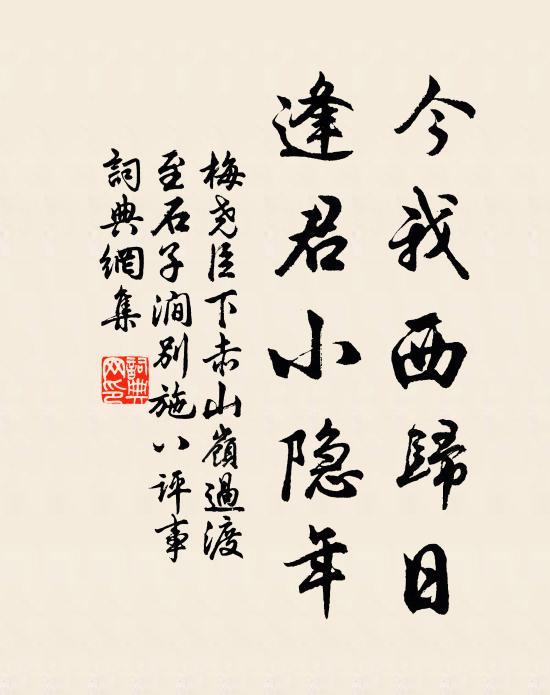 今我西歸日
逢君小隐年
梅尧臣下赤山嶺過渡
至石子澗别施八評事
詞典網集
詞典
网印